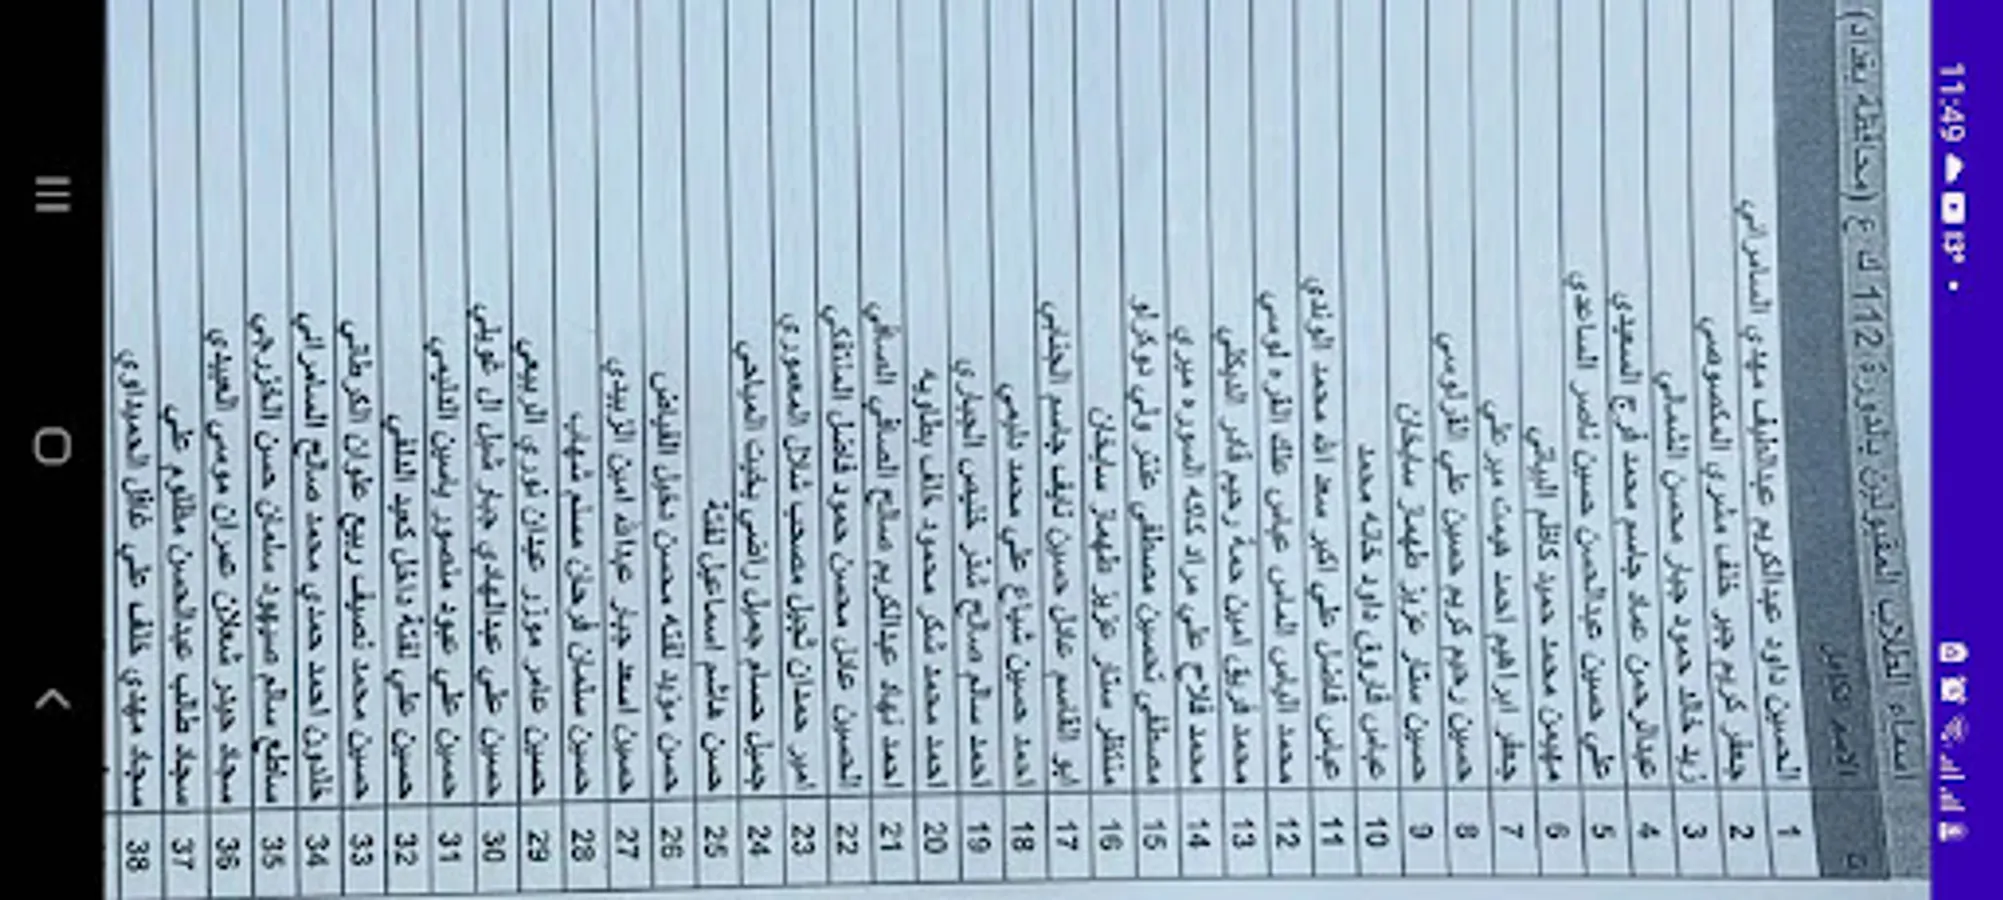 11:49
اسماء الطلاب المقبولين بالدورة 112 ك ع (محافظة بغداد)
ت الاسم الكامل
1 الحسين داود عبدالكريم عبداللطيف مهدي السامرائي
2 جعفر كريم جبر خلف مشري المكصوصي
3 زيد خالد حمود جبار محسن الشمالي
4 عبدالرحمن عماد جاسم محمد فرج السعيدي
5 علي حسين عبدالحسن حسين ناصر الساعدي
6 مهيمن محمد حميد كاظم البياتي
7 جعفر ابراهيم احمد هيمت مير علي
8 حسين رحيم كريم حسين علي القرلوسي
9 حسين ستار عزيز طهماز سايخان
10 عباس فاروق داود خاله محمد
11 عباس فاضل علي اكبر سعد الله محمد الوندي
12 محمد الياس الماس عباس علك القره لوسي
13 محمد فريق امين حمة رحيم قادر الديكلي
14 محمد فلاح علي مراد ككه السوره ميري
15 مصطفى تحسين مصطفى عنتر ولي دوكرلو
16 منتظر ستار عزيز طهماز سايخان
17 ابو القاسم عادل حسين نايف جاسم الجنابي
18 احمد حسين شياع علي محمد دليمي
19 احمد سالم صالح شذر خميس الجباري
20 احمد محمد شكر محمود خلف بطاويه
21 احمد نهاد عبدالكريم صالح الصافي الصافي
22 الحسين عادل محسن حمود فاضل المنتفكي
23 امير حمدان ثجيل مصحب شلال المعموري
24 جميل حسام جميل راضي بخيت المياحي
25 حسن هاشم اسماعيل لفتة
26 حسن مؤيد لفته محسن دخيل الفياض
27 حسين اسعد جبار عبدالله امين الزبيدي
28 حسين سلمان فرحان مسلم شهاب
29 حسين عامر موزر عيدان نوري الربيعي
30 حسين علي عبدالهادي جبار شبل ال غويلي
31 حسين علي عبود منصور ياسين الدليمي
32 حسين علي لفتة داخل كعيد الدلفي
33 حسين محمد نصيف ربيع علوان الكرطاني
34 خالدون احمد حمدي محمد صالح السامرائي
35 ساطع سالم صيهود سلمان حسن الخزرجي
36 سجاد حيدر شعلان عمران موسى العبيدي
37 سجاد طالب عبدالحسن مظلوم علي
38 سجاد مهدي خلف علي غافل الحميداوي